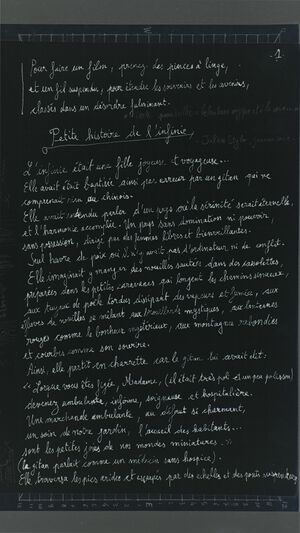 1
Pour faire un film, prenez des pinces à linge,
et un fil suspendu, pour étendre les souvenirs et les avenirs,
classés dans un désordre fulminant.
Petite histoire de l'infinie,
L'infinie était une fille joyeuse et voyageuse...
Elle avait été baptisée ainsi par erreur par un gitan qui ne
comprenait rien au chinois.
Elle avait entendu parler d'un pays où la sérénité serait éternelle,
et l'harmonie accomplie. Un pays sans domination ni pouvoir,
sans possession, dirigé par des femmes libres et bienveillantes.
Seul havre de paix où il n'y avait pas d'ordinateur, ni de conflit.
Elle imaginait y manger des nouilles sautées dans des
préparées dans les petites caravanes qui longent les chemins sinueux,
aux tuyaux de poêle tordus dissipant des vapeurs et fumées, aux
effluves de nouilles se mêlant aux brouillards mystiques, aux lanternes
rouges comme le bonheur mystérieux, aux montagnes rebondies
et courbées comme son sourire.
Ainsi, elle partit en charrette car le gitan lui avait dit:
« Lorsque vous êtes figée, Madame, (il était très poli et un peu polisson)
devenez ambulante, infirme, soigneuse et hospitalière.
Une marchande ambulante, au défunt si charmant,
un soin de notre jardin, l'accueil des habitants...
sont les petites joies de nos mondes miniatures... »
(le gitan parlait comme un médecin sans hospice).
Elle traversa les pics arides et escarpés par des échelles et des ponts suspendus